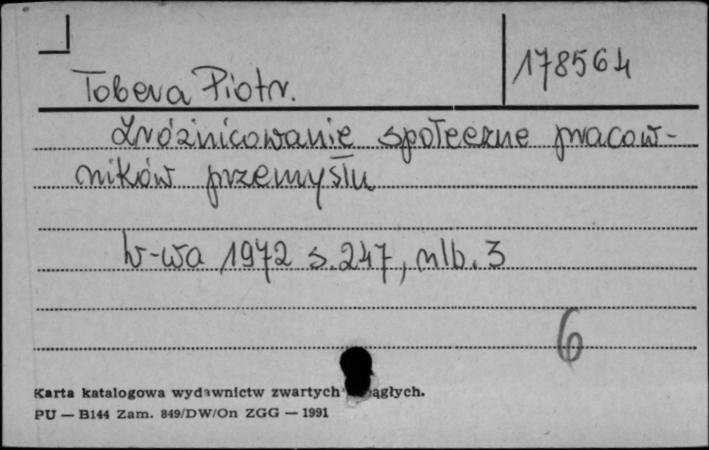 Tobera Piotr.
178564
Zróżnicowanie społeczne pracow-
ników przemysłu
W-wa 1972 s. 247, nlb. 3
6
Karta katalogowa wydawnictw zwartych
PU — B144 Zam. 849/DW/On ZGG — 1991